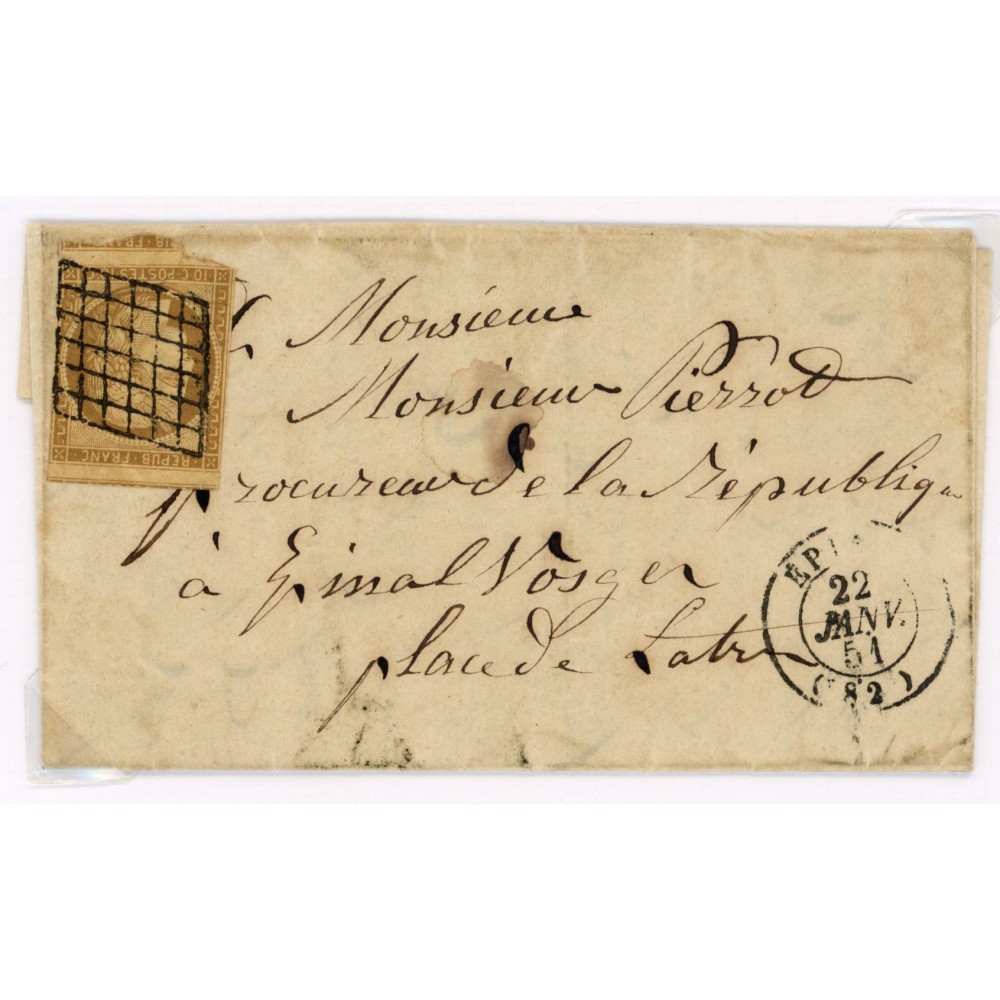 UB · FRAN
10 C · POSTES
REPUB · FRANC ·
A Monsieur
Monsieur Pierrot
procureur de la République
à Epinal Vosges
place de Latre
ÉPI
22
JANV.
51
(82)